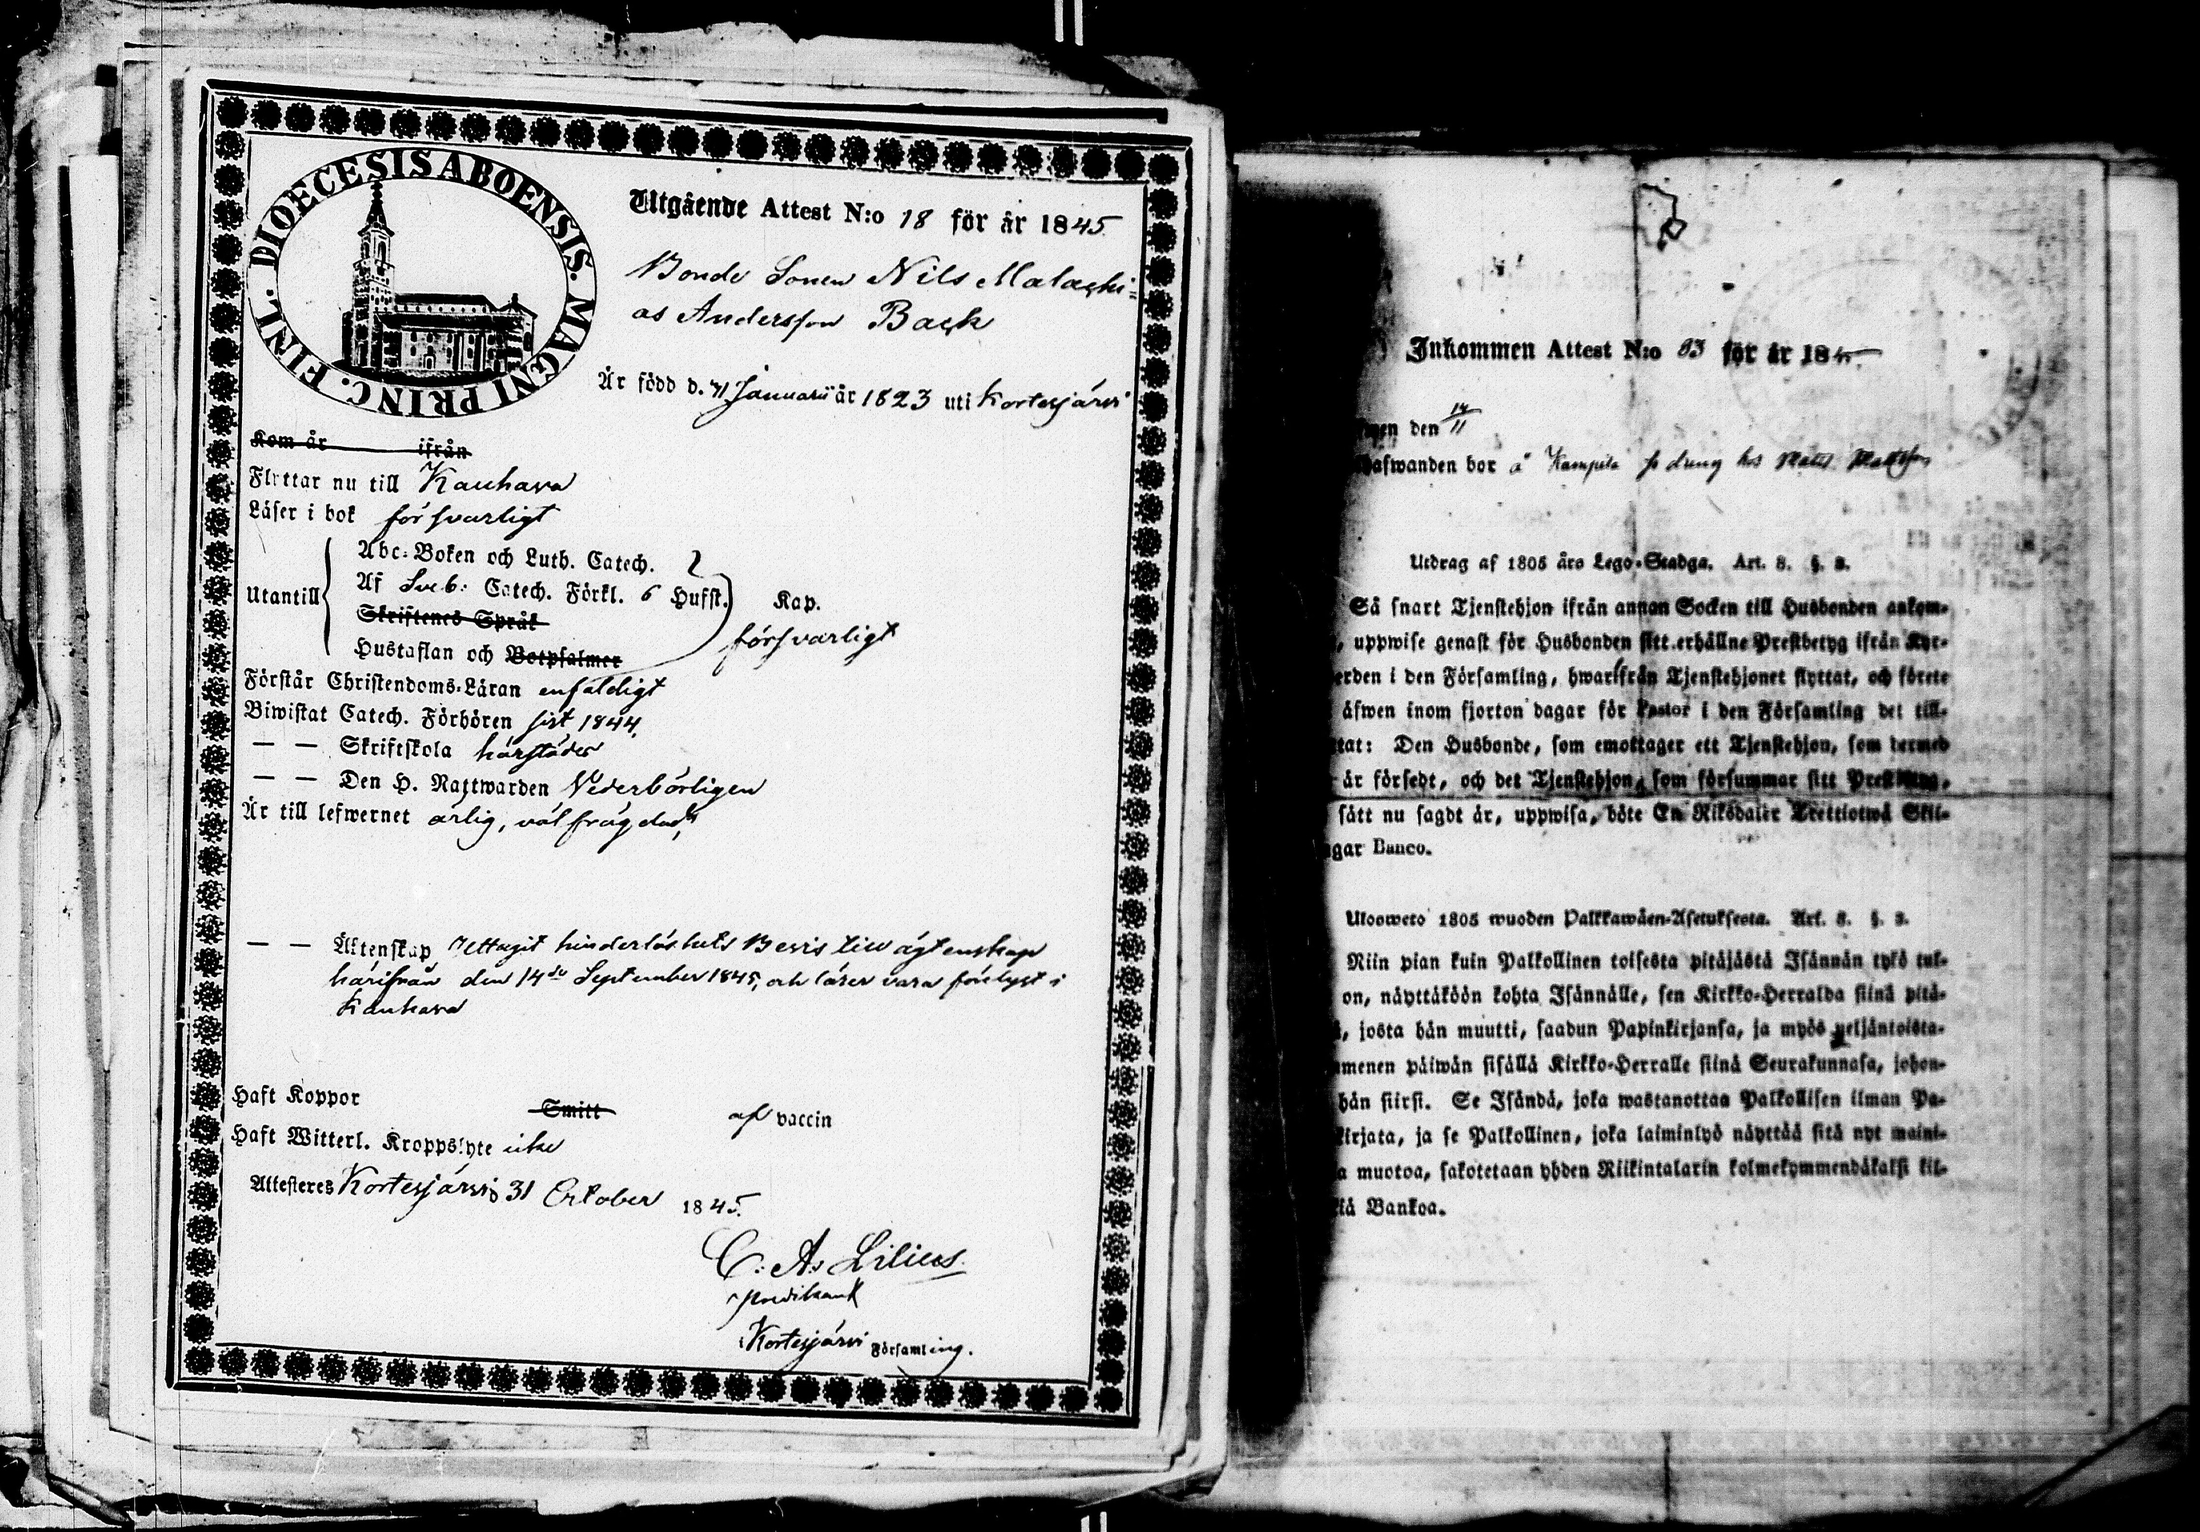 DIOECESIS ABOENSIS. MAGNI PRINC. FINL.
Utgående Attest N:o 18 för år 1845.
Bonde Sonen Nils Malachi=
as Andersson Back
Är född d. Januarii år 1823 uti Kortesjärvi
Kom år ifrån
Flyttar nu till Kauhava
Läser i bok försvarligt
Abc-Boken och Luth. Catech.
Utantill Af Sveb: Catech. Förkl. 6 Hufst. Kap.
Skriftenes Språk försvarligt
Hustaflan och Botpsalmer
Förstår Christendoms-Läran enfaldigt
Biwistat Catech. Förhören sist 1844.
— — Skriftskola härstädes
— — Den H. Nattwarden Vederbörligen
Är till lefwernet ärlig, väl frägdad,
— — Äktenskap, Uttagit hinderlöshets Bevis till ägtenskap
härifrån den 14de September 1845, och lärer vara förelyst i
Kauhava
Haft Koppor Smitt af vaccin
Haft Witterl. Kroppslyte icke
Attesteres Kortesjärvi d 31 October 1845.
C. A. Lilius.
predikant
Kortesjärvi Församling.
Inkommen Attest N:o 93 för år 184
den 14/11
hafwanden bor å Kampila s. dräng hos Mats Mattsson
Utdrag af 1805 års Lego-Stadga. Art. 8. §. 2.
Så snart Tjenstehjon ifrån annan Socken till Husbonden ankom-
, uppwise genast för Husbonden sitt erhållne Prestbetyg ifrån Kyr-
erden i den Församling, hwarifrån Tjenstehjonet flyttat, och förete
äfwen inom fjorton dagar för Pastor i den Församling det till-
tat: Den Husbonde, som emottager ett Tjenstehjon, som dermed
är försedt, och det Tjenstehjon, som försummar sitt Prestbetyg,
sätt nu sagdt är, uppwisa, böte En Riksdaler Trettiotwå Skil-
gar Banco.
Ulosweto 1805 wuoden Palkkawäen-Asetuksesta. Art. 8. §. 2.
Niin pian kuin Palkollinen toisesta pitäjästä Isännän tykö tul-
on, näyttäköön kohta Isännälle, sen Kirkko-Herralda siinä pitä-
, josta hän muutti, saadun Papinkirjansa, ja myös neljäntoista-
mmenen päiwän sisällä Kirkko-Herralle siinä Seurakunnasa, johon-
hän siirsi. Se Isändä, joka wastanottaa Palkollisen ilman Pa-
kirjata, ja se Palkollinen, joka laiminlyö näyttää sitä nyt maini-
a muotoa, sakotetaan yhden Riikintalarin kolmekymmendäkaksi kil-
iä Bankoa.